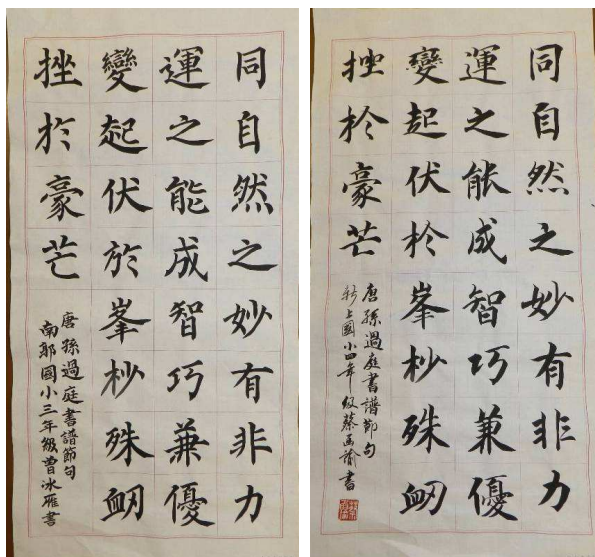 同自然之妙有非力
運之能成智巧兼優
變起伏於峯杪殊衂
挫於豪芒
唐孫過庭書譜節句
南郭國小三年級曾冰雁書
同自然之妙有非力
運之能成智巧兼優
變起伏於峯杪殊衂
挫於豪芒
唐孫過庭書譜節句
新上國小四年級蔡函諭書